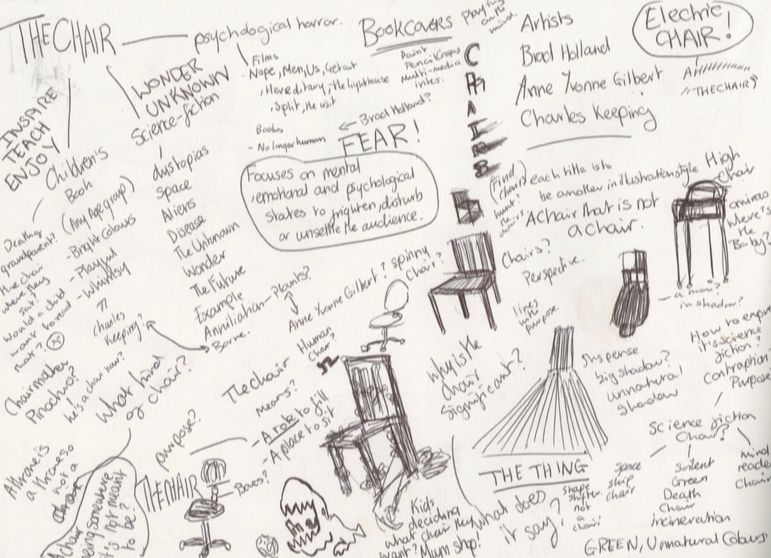 THE CHAIR — psychological horror.
BOOKCOVERS
playing on the mind.
Artists
Brad Holland
Anne Yvonne Gilbert
Charles Keeping
Electric CHAIR!
"THE CHAIR"
INSPIRE
TEACH
ENJOY
WONDER
UNKNOWN
Science-fiction
Films
- Nope, Men, Us, Get out
, Hereditary, The lighthouse
, Split, The visit
Books
- No longer human
← Brad Holland?
Multi-media
inks.
FEAR!
Focuses on mental
, emotional and psychological
states to frighten, disturb
or unsettle the audience.
Children's
Book
(Any Age group)
- Bright Colours
- Playful
- Whimsy
Charles
Keeping?
dystopias
Space
Aliens
Disease
The Unknown
Wonder
The Future
Example
Annihilation - Plants?
Borne.
Death of
grandparent?
The chair
where they
sat?
Would a child
want to read
that?
Chairmaker
Pinochio?
What kind
of chair?
Anne Yvonne Gilbert?
spinny
chair?
Human
Chair
each title is to
be another in illustration style
A chair that is not
a chair.
High
Chair
Where's
the
Baby?
Chairs?
Perspective.
lines
with
purpose
a man?
in shadow?
Why is the
chair
significant?
Suspense
big shadow?
unnatural
shadow
it's science
fiction?
Contraption
Purpose
Science fiction
Chair?
Space
ship
chair
Soilent
Green
Death
Chair
incineration
Mind
reader
Chair
GREEN, Unnatural Colours
The chair
means?
- A role to fill
- A place to sit
purpose?
THE CHAIR
- Boxes?
A throne is
a throne so
not a
chair
A chair
being somewhere
it's not meant
to be?
Kids
deciding
what chair they
want? Mum shop!
THE THING
shape
shifter.
not
a
chair!
What does
it say?